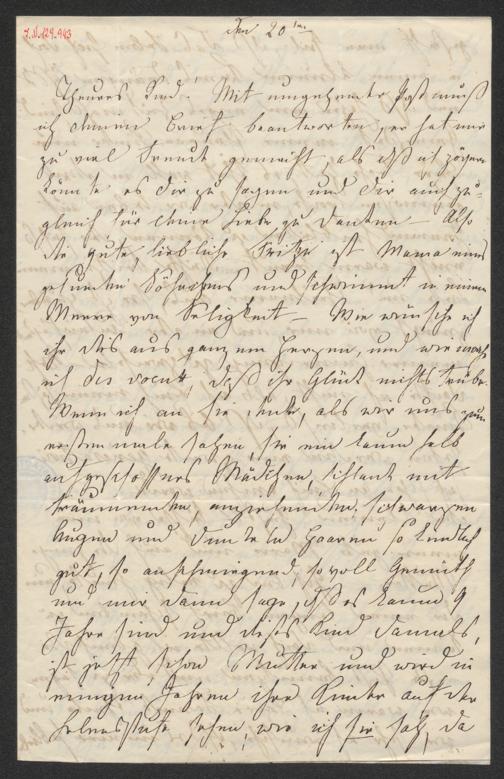 I.N. 129.943
Den 20ten
Theures Kind! Mit umgehender Post muß
ich deinen Brief beantworten, er hat mir
zu viel Freude gemacht, als daß ich zögern
könnte es dir zu sagen und dir auch zu-
gleich für deine Liebe zu danken – Also
die gute, liebliche Fritzi ist Mama eines
gesunden Söhnchens und schwimmt in einem
Meere von Seligkeit – Wie wünsche ich
ihr dies aus ganzem Herzen, und wie
ich daß ihr Glück nichts trübe.
Wenn ich an sie denke, als wir uns zum
ersten male sahen, sie ein kaum halb
aufgeschossenes Mädchen, schlank mit
träumenden, anziehenden schwarzen
Augen und dunkeln Haaren so kindlich
gut, so anschmiegend, so voll Gemüth
und mir dann sage, daß es kaum 9
Jahre sind und dieses Kind damals,
ist jetzt schon Mutter und wird in
einigen Jahren ihre Kinder auf der
Lebensstufe sehen, wie ich sie sah, da